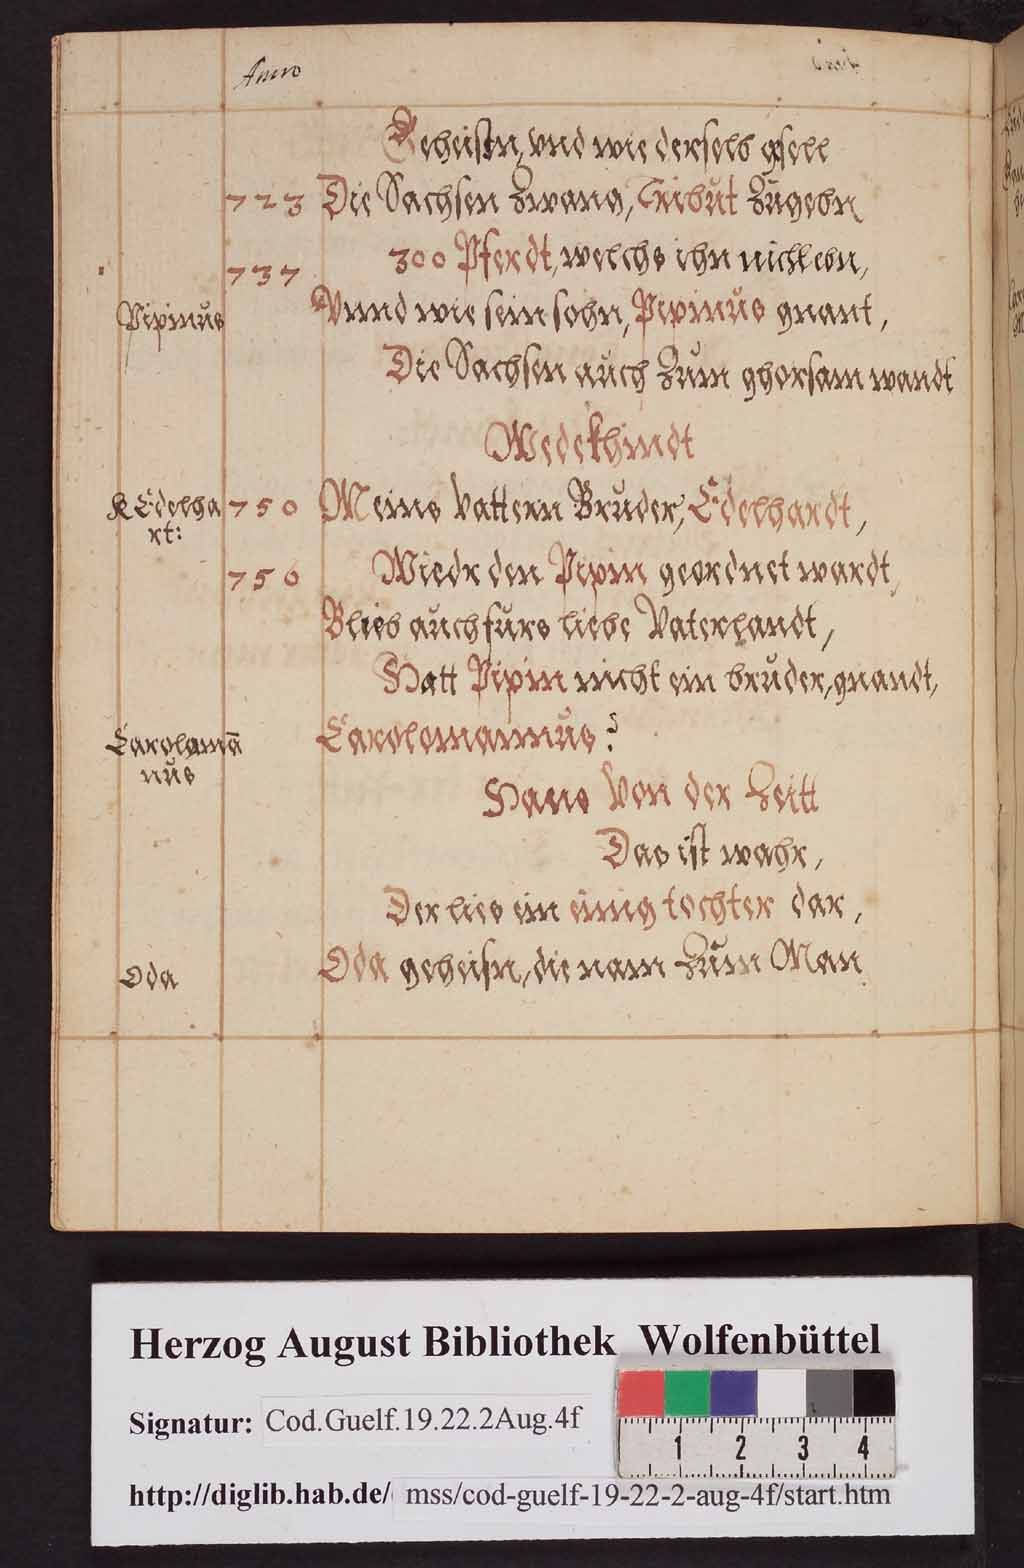 Anno
Geheisn, vnd wie derselb gsell
723 Die Sachsen Zwang, Tribut Zugebn
737 300 Pferdt, welchs ihn nicht ebn,
Pipinus Vnnd wie sein sohn, Pipinus gnant,
Die Sachsen auch Zum ghorsam wandt
Wedekhindt
K Edelha 750 Meins Vattern Bruder, Edelhardt,
rt:
756 Wiedr den Pipin geordnet wardt,
Blieb auch furs liebe Vaterlandt,
Hatt Pipin nicht ein bruder, gnandt,
Carolomā Carolomannus?
nus
Hans Von der Zeitt
Das ist wahr,
Der lies ein einig tochter dar,
Oda Oda geheisn, die nam Zum Man
Herzog August Bibliothek Wolfenbüttel
Signatur: Cod.Guelf.19.22.2Aug.4f
1 2 3 4
http://diglib.hab.de/ mss/cod-guelf-19-22-2-aug-4f/start.htm